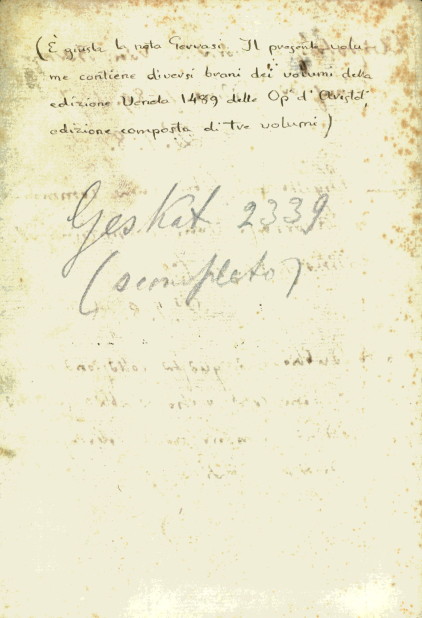 (È giusta la nota Gervasi. Il presente volu-
me contiene diversi brani dei volumi della
edizione Veneta 1489 delle Op. d'Aristot,
edizione composta di tre volumi.)
Ges Kat 2339
(scompleto)